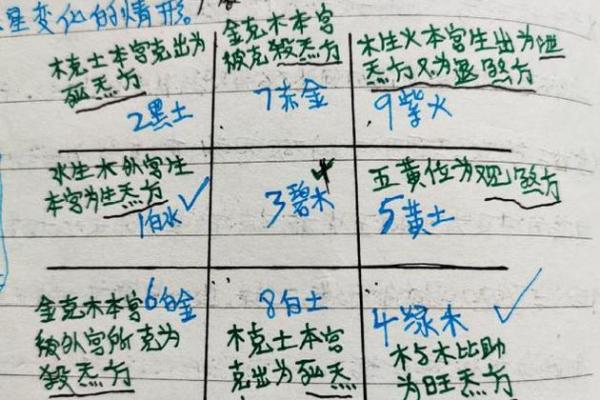 星变化的情形。
木克土本宫克出为
死炁方
2黑土
金克木本宫
被克殺炁方
7赤金
木生火本宫生出为泄
炁方又为退煞方
9紫火
水生木外宫生
本宫为生炁方
1白水
3碧木
五黄位为观煞方
5黄土
金克木本宫
6白金
被外宫所克为
殺炁方
8白土
木克土本宫
克出为死炁
4绿木
木与木比助
为旺炁方